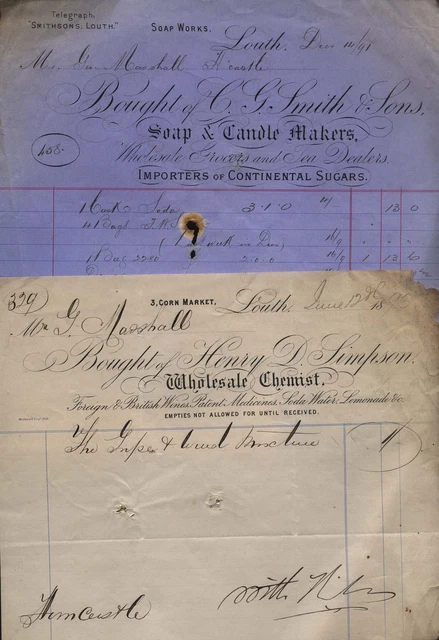 Telegraph.
"Smithsons, Louth."
Soap Works.
Louth, Dec 14/91
Mr Geo Marshall H'castle
Bought of C. G. Smith & Sons,
Soap & Candle Makers,
Wholesale Grocers and Tea Dealers.
Importers of Continental Sugars.
458.
1 Cask Soda 3.1.0 13 0
41 Bags
16/9
1 Bag 2280 2.0.0 16/9 1 13 6
329
3, Corn Market, Louth, June 12th 18
Mr G. Marshall
Bought of Henry D. Simpson,
Wholesale Chemist.
Foreign & British Wines, Patent Medicines, Soda Water, Lemonade &c.
Empties not allowed for until received.
The Gripe & Wind Mixture
Horncastle